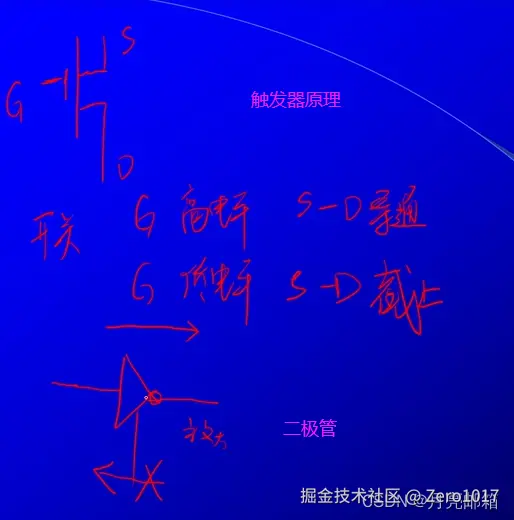 S
G
触发器原理
D
开关
G 高电平 S-D 导通
G 低电平 S-D 截止
放大
二极管
X
掘金技术社区 @ Zero1017
CSDN @月亮邮箱